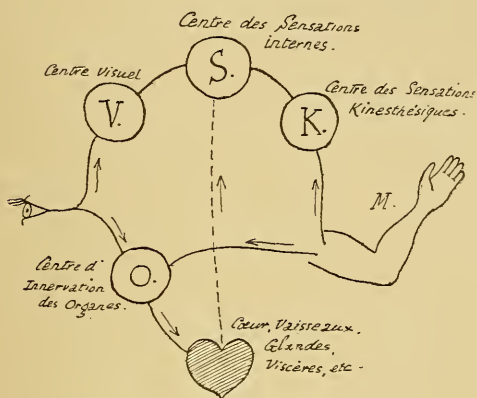 Centre des Sensations
internes.
Centre visuel
S.
Centre des Sensations
Kinesthésiques.
V.
K.
M.
O.
Centre d'
Innervation
des Organes.
Cœur, Vaisseaux.
Glandes,
Viscères, etc -